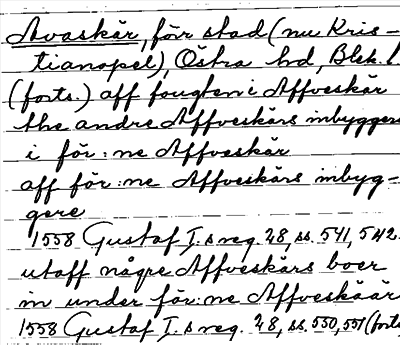 Avaskär, förr stad (nu Kris-
tianopel), Östra hd, Blek. l
(forts.) aff fougten i Affveskär
the andre Affveskärs inbyggers
i för:ne Affveskär
aff för:ne Affveskärs inbyg-
gere
1558 Gustaf I.s reg. 28, ss. 541, 542.
utaff någre Affveskärs boer
in under för:ne Affveskäär
1558 Gustaf I.s reg. 28, ss. 550, 551 (forts